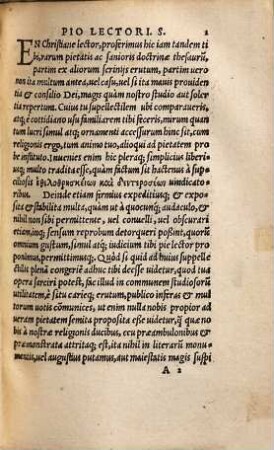 PIO LECTORI. S. 2
EN Christiane lector, proferimus hic iam tandem ti
bi, rarum pietatis ac sanioris doctrinæ thesaurũ,
partim ex aliorum scrinijs erutum, partim uero
non ita multum antea, uel casu, uel si ita mauis prouiden
tia & consilio Dei, magis quàm nostro studio aut soler
tia repertum. Cuius tu supellectilem ubi comparaueris,
atq; è cottidiano usu familiarem tibi feceris, mirum quan
tum lucri simul atq; ornamenti accessurum hinc sit, cum
religionis ergo, tum animo tuo, atq; adeo pietatem pio
bo instituto. Inuenies enim hic pleraq; simplicius liberi
usq; multo tradita esse, quàm factum sit hactenus à suspi
ciosis uindicato
ribus. Deinde etiam firmius expeditiusq; & expo
sita & stabilita multa, quàm quæ à quouis, audaculo, &
et nihil non sibi permittente, uel conuelli, uel obscurari
etiam in, sensum reprobum detorqueri possint, quorũ
omnium gustum, simul atq; iudicium tibi pie lector pro
ponimus, permittimusq;. Quòd si quid ad huius suppelle
ctilis plenã congeriẽ adhuc tibi deesse uidetur, quod tua
opera sarciri potest, fac illud in commune studiosorũ
utilitatem, è situ & carieq; erutum, publico inferas & mul
torum uotis cõmunices, ut enim nulla nobis propior ad
ueram pietatem semita proposita esse uidetur, q̃ quæ no
bis à nostræ religionis ducibus, ceu præambulonibus &
præmonstrata attritaq; est, ita nihil in literarũ monu-
mentis, uel augustius putamus, aut maiestatis magis suspi
A 2